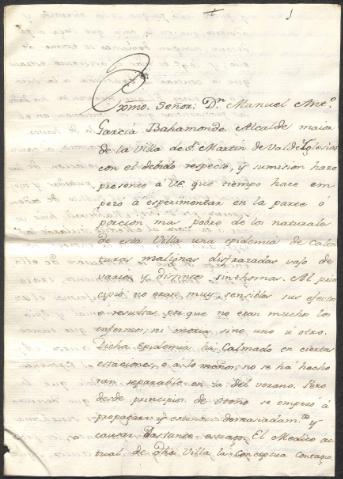 1
Exmo. Señor. Dn. Manuel Anto.
Garcia Bahamonde Alcalde maior
de la Villa de Sn. Martin de Valdeiglesias
con el debido respeto, y sumision hace
presente a VE. que tiempo hace em
pezó a experimentar en la parte ó
porcion mas pobre de los naturales
de esta Villa una epidemia de Calen
turas malignas disfrazadas vajo de
varios y distintos sinthomas. Al prin
cipio no eran muy sensibles sus efectos
ó resultas por que no eran mucho los
enfermos, ni moria sino uno ú otro.
Dicha Epidemia ha Calmado en ciertas
estaciones, o a lo menos, no se ha hecho
tan reparable en la del verano. Pero
desde principios de otoño se empezó á
propagar y estender demasiadamte. y
causar bastante estrago. El Medico ac
tual de dha Villa las conceptua contagio